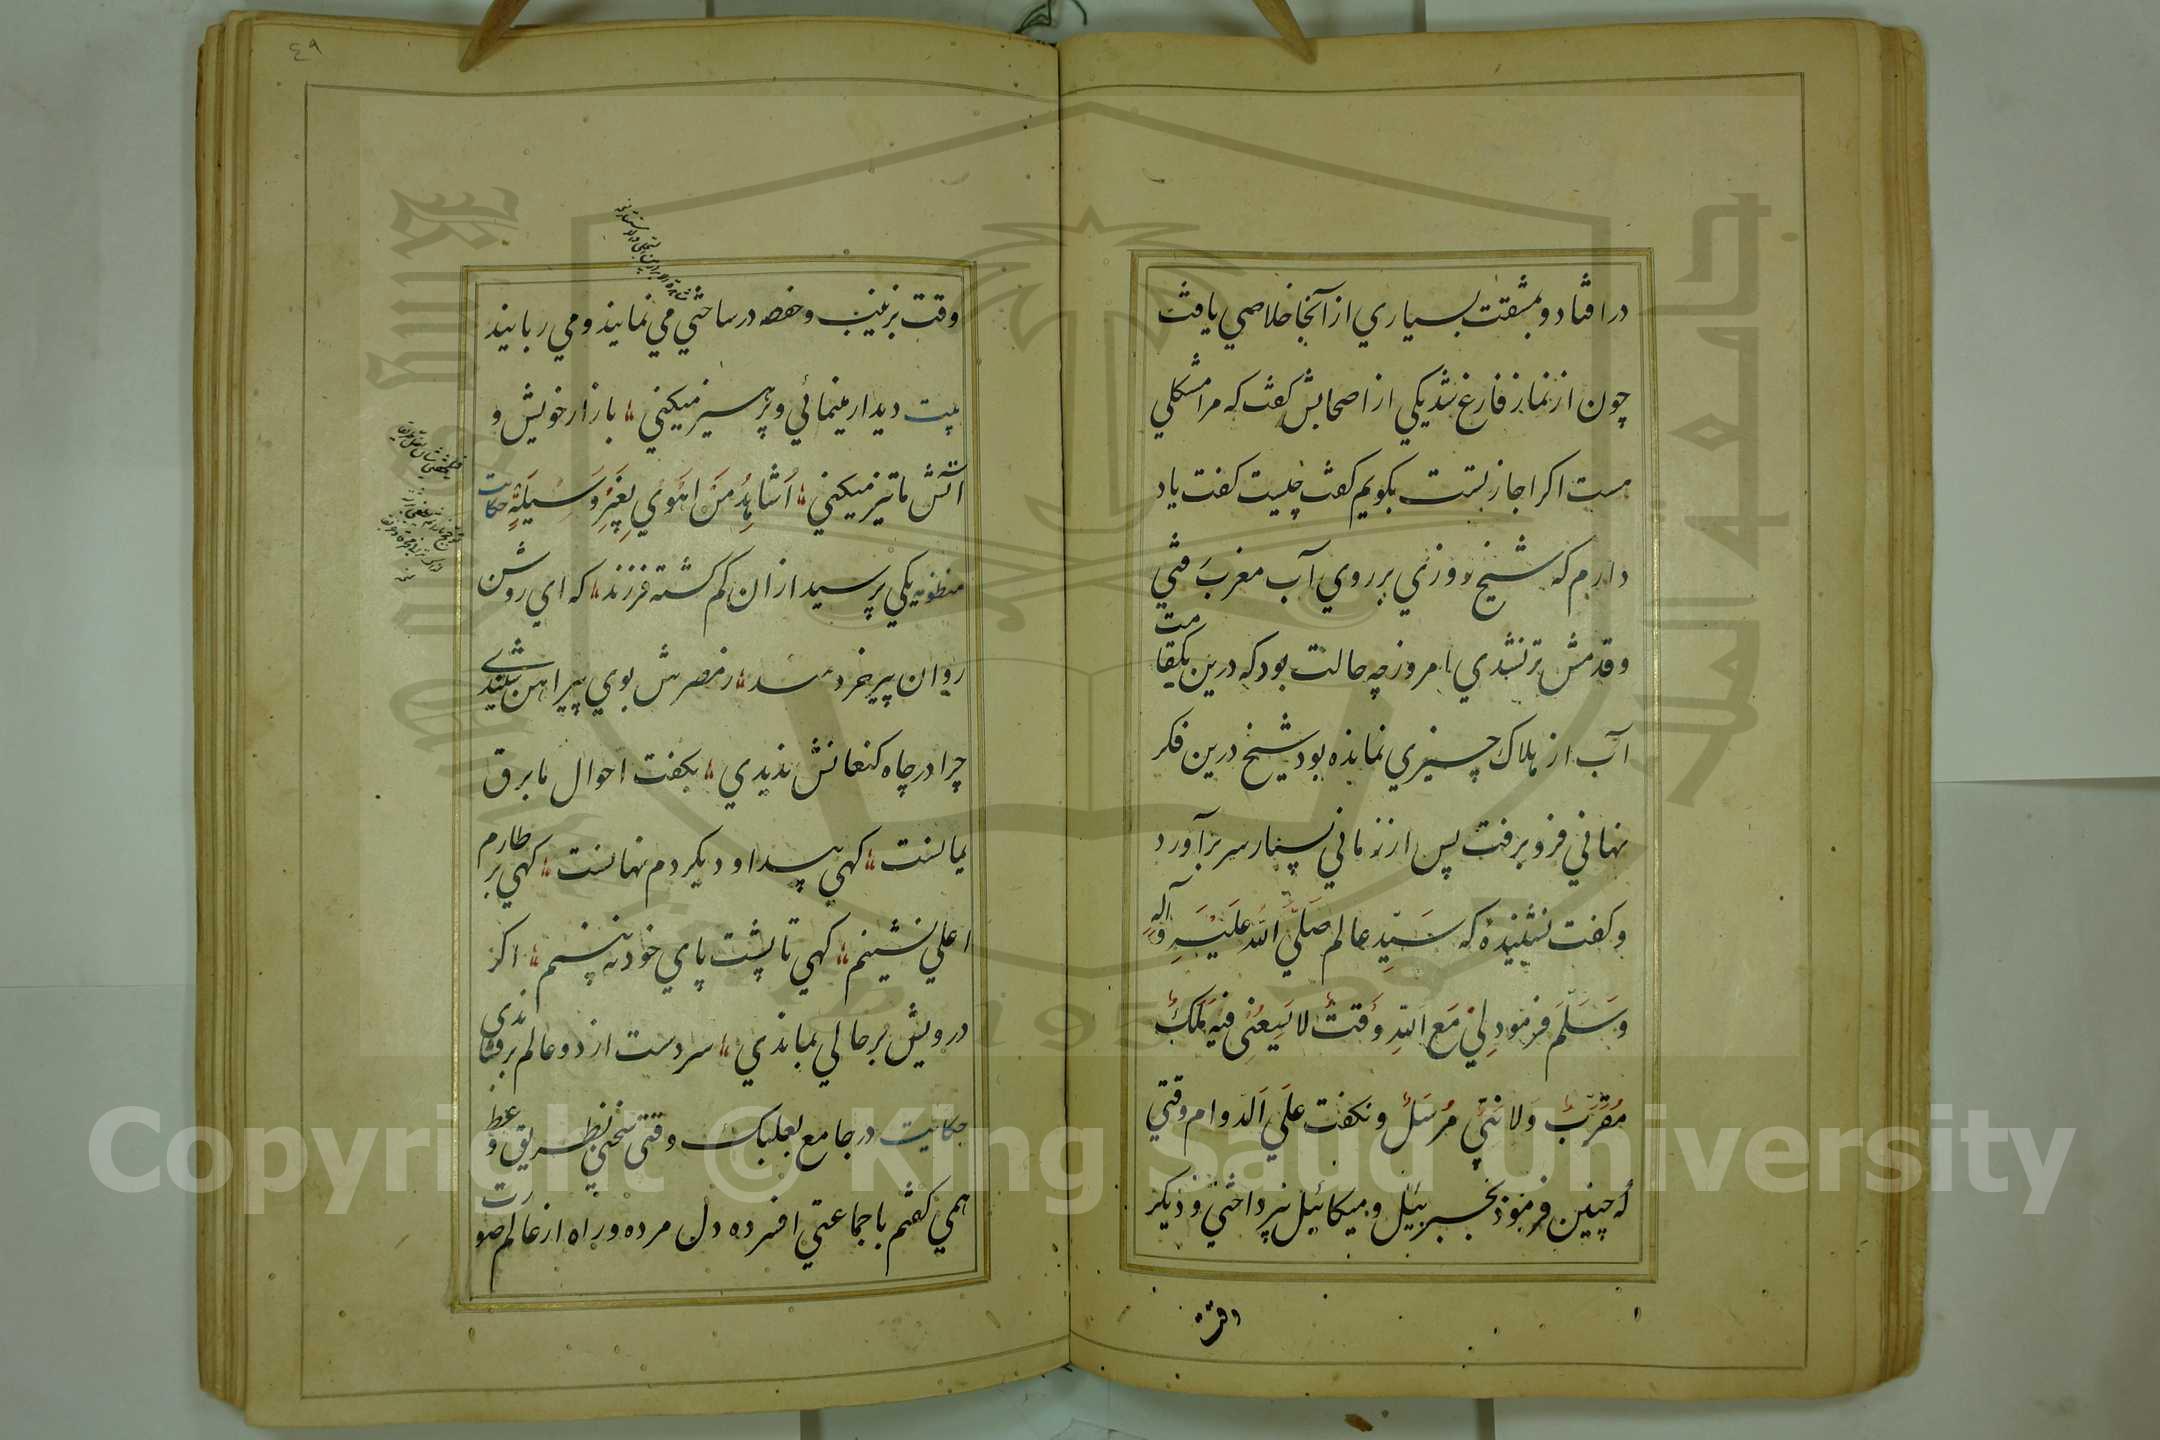 در افتاد و بمشقت بسياري از آنجا خلاصي يافت
چون از نماز فارغ شد يكي از اصحابش كفت كه مرا مشكلي
هست اكر اجازتست بكويم كفت چيست كفت ياد
دارم كه شيخ روزي بر روي آب مغرب رفتي
و قدمش تر نشدي امروز چه حالت بود كه درين يكقامت
آب از هلاك چيزي نمانده بود شيخ درين فكر
نهاني فرو برفت پس از زماني بسيار سر بر آورد
و كفت نشنيده كه سَيِّدِ عالم صَلَّي اللهُ عَلَيْهِ وَآلِهِ
وَسَلَّمَ فرمود لِي مَعَ اللهِ وَقتٌ لا يَسَعُنِي فِيهِ مَلَكٌ
مُقَرَّبٌ وَلا نَبِيٌّ مُرْسَلٌ و نكفت عَلَي الدوام وقتي
كه چنين فرمود بجبرئيل و ميكائيل نپرداختي و ديكر
وقت
٤٩
وقت بزينب و حفصه در ساختي مي نمايند و مي ربايند
بيت ديدار مينمائي و پرهيز ميكني بازار خويش و
آتش ما تيز ميكني اُشاهِدُ مَن اَهْوَي بِغَيْرِ وَسِيلَةٍ حكايت
منظومه يكي پرسيد از ان كم كشته فرزند كه اي روشن
روان پير خردمند ز مصرش بوي پيراهن شنيدي
چرا در چاه كنعانش نديدي بكفت احوال ما برق
يمانست كهي پيدا و ديكر دم نهانست كهي بر طارم
اعلي نشينم كهي تا پشت پاي خود نه بينم اكر
درويش بر حالي بماندي سر دست از دو عالم برفشاندي
حكايت در جامع بعلبك وقتي سخني بطريق وعظ
همي كفتم با جماعتي افسرده دل مرده و راه از عالم صورت
Copyright © King Saud University
جامعة الملك سعود
1957